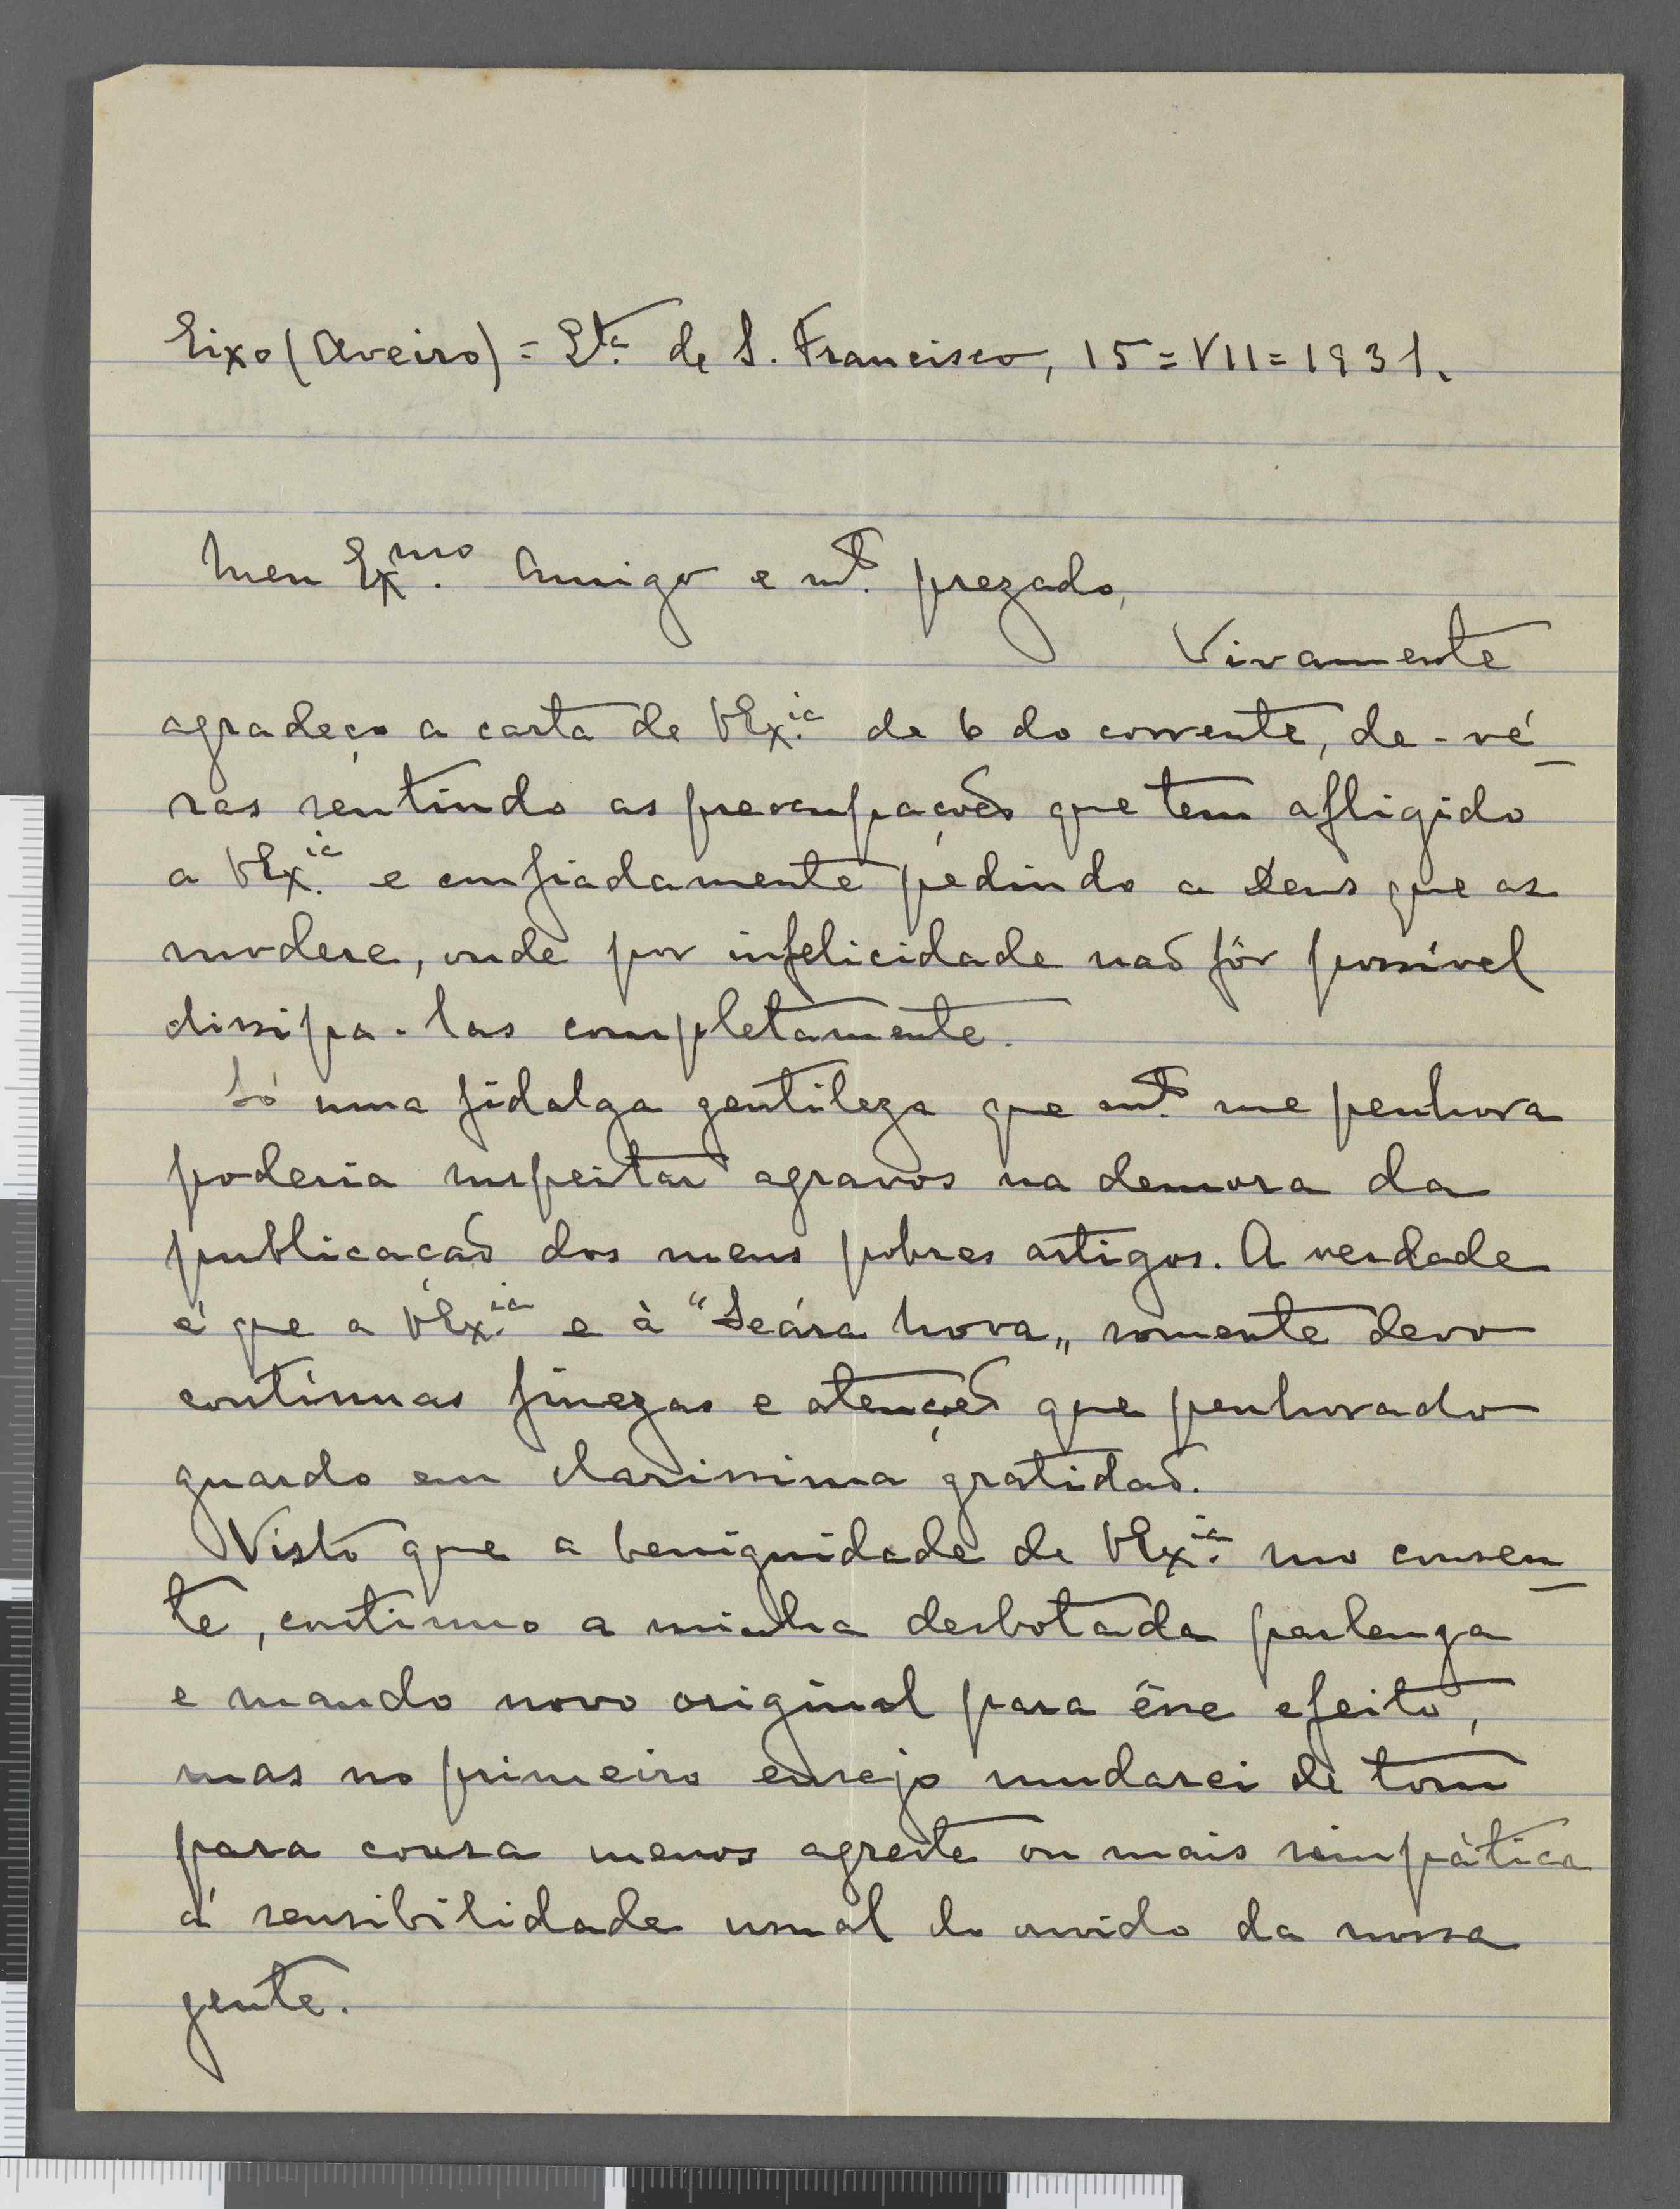 Eixo (Aveiro) = Qta. de S. Francisco, 15=VII=1931.
Meu Exmo. Amigo e mto. prezado,
Vivamente
agradeço a carta de VExia. de 6 do corrente, de-vé
ras sentindo as preocupações que tem afligido
a VExia. e confiadamente pedindo a Deus que as
modere, onde por infelicidade naõ fôr possível
dissipa-las completamente.
Só uma fidalga gentileza que mto. me penhora
poderia suspeitar agravos na demora da
publicaçaõ dos meus pobres artigos. A verdade
é que a VExia. e à "Seára Nova„ somente devo
contínuas finezas e atenções que penhorado
guardo em claríssima gratidaõ.
Visto que a benignidade de VExia. mo consen
te, continuo a minha desbotada parlenga
e mando novo original para êsse efeito,
mas no primeiro ensejo mudarei de tom
para cousa menos agreste ou mais simpática
á sensibilidade usual do ouvido da nossa
gente.